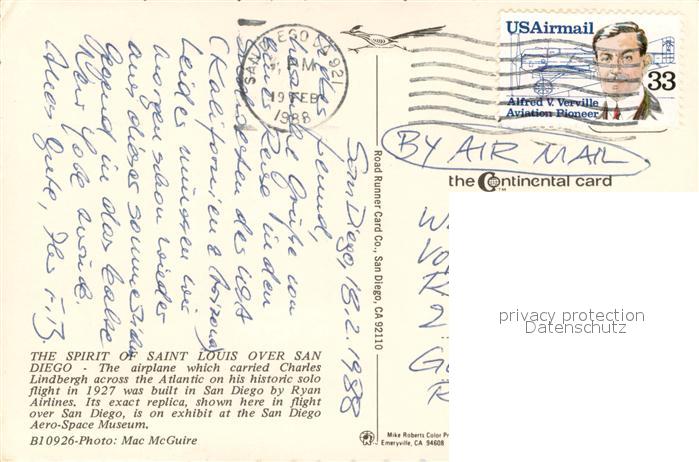 San Diego, 18.2.1988
Lieber Freund,
herzliche Grüße von
einer Reise in den
Südwesten der USA
(Kalifornien & Arizona)
Leider müssen wir
morgen schon wieder
aus dieser sonnenreichen
Gegend in das kalte
New York zurück.
Alles Gute, Ihr
SAN DIEGO CA 921
PM
19 FEB
1988
USAirmail
33
Alfred V. Verville
Aviation Pioneer
BY AIR MAIL
the Continental card
Road Runner Card Co., San Diego, CA 92110
privacy protection
Datenschutz
THE SPIRIT OF SAINT LOUIS OVER SAN
DIEGO - The airplane which carried Charles
Lindbergh across the Atlantic on his historic solo
flight in 1927 was built in San Diego by Ryan
Airlines. Its exact replica, shown here in flight
over San Diego, is on exhibit at the San Diego
Aero-Space Museum.
B10926-Photo: Mac McGuire
Mike Roberts Color Pr
Emeryville, CA 94608